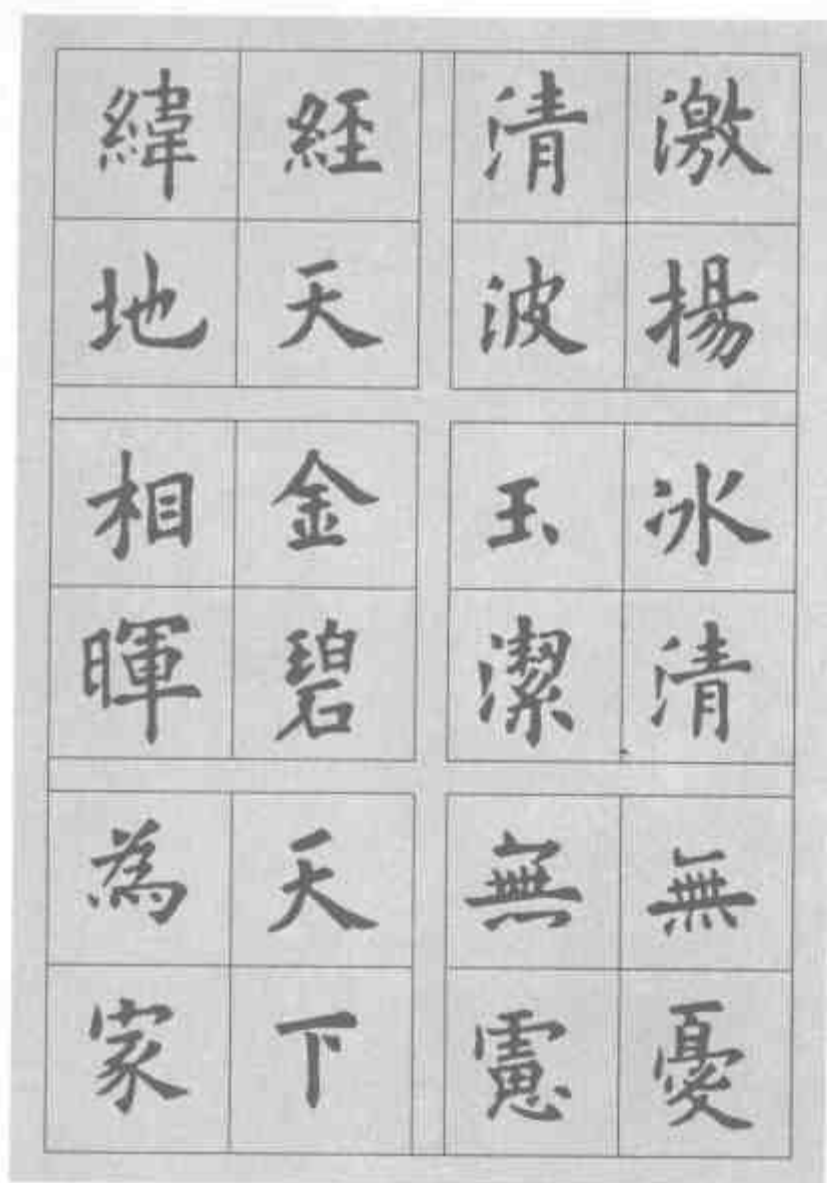 激揚
清波
經天
緯地
冰清
玉潔
金碧
相暉
無憂
無慮
天下
為家